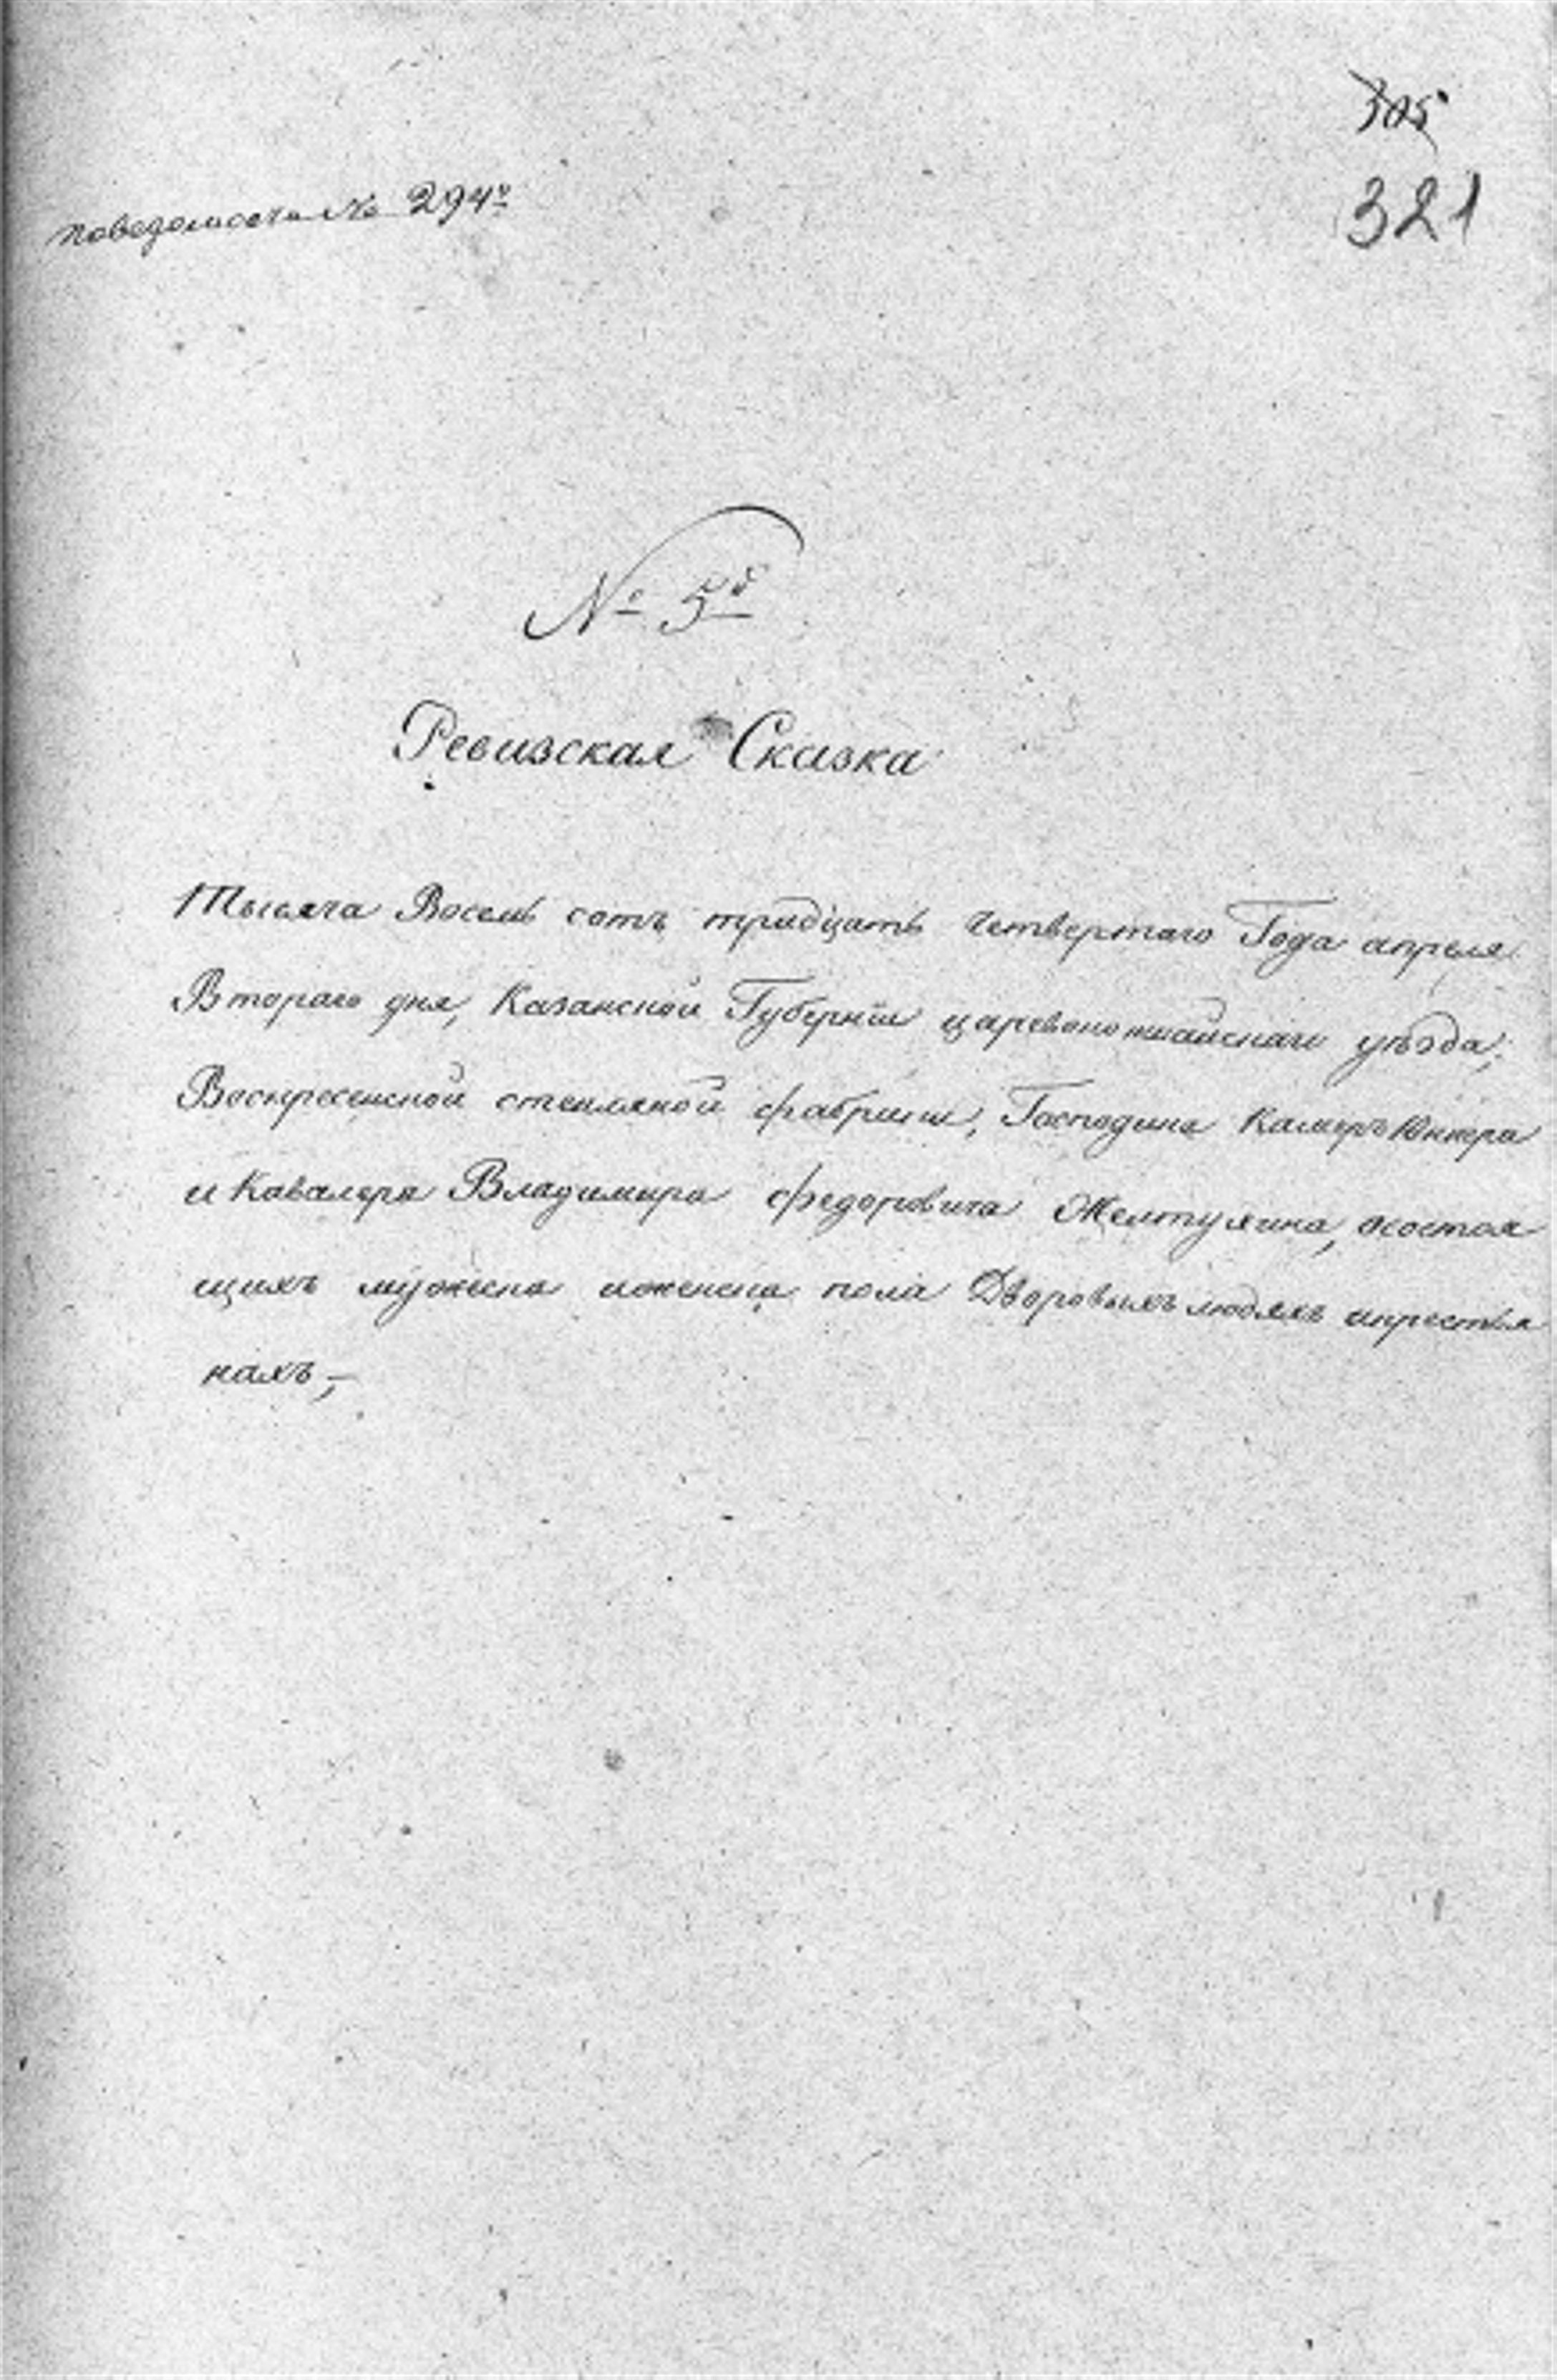 305
321
поведомости № 294º
№ 5й
Ревизская Сказка
Тысяча Восемь сотъ тридцать четвертаго Года апреля
Втораго дня, Казанской Губернiи царевококшайскаго уѣзда,
Воскресенской стекляной фабрики, Господина Камеръ Юнкера
и Кавалера Владимира Федоровича Желтухина, осостоя
щихъ мужеска иженска пола Дворовыхъ людяхъ икрестья
нахъ,—